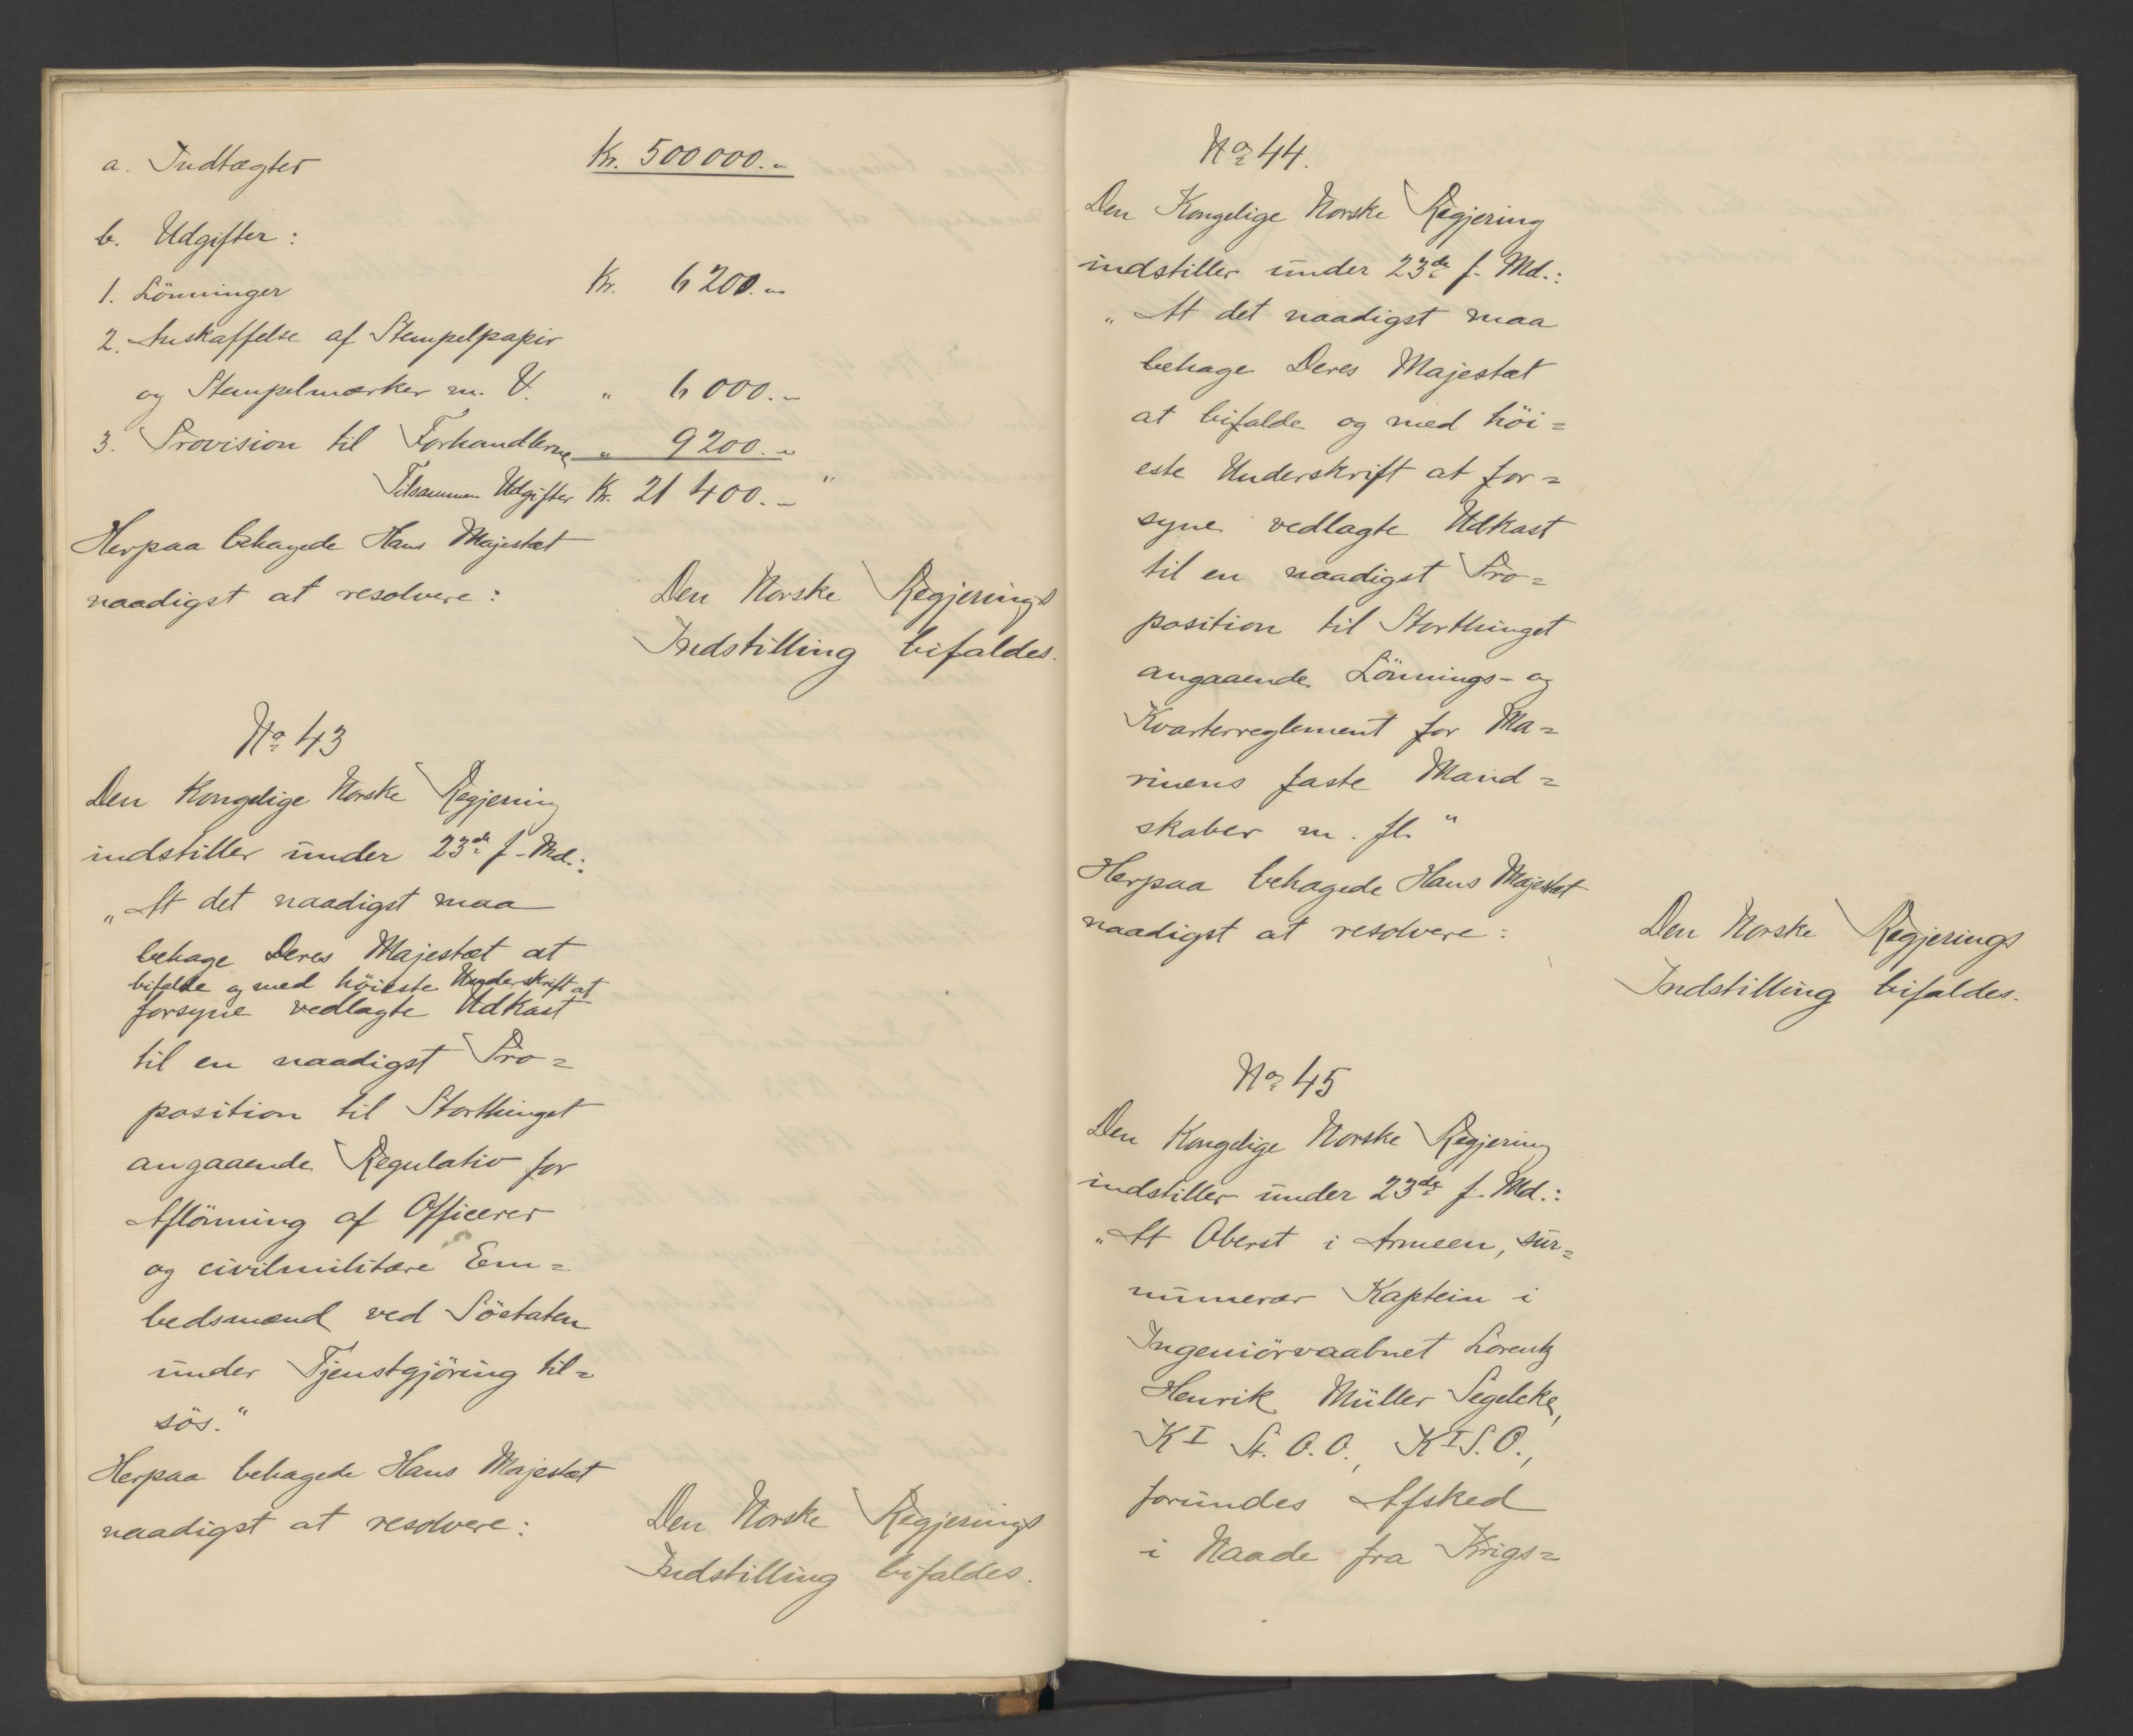 a. Indtægter Kr. 500000.-
b. Udgifter:
1. Lönninger Kr. 6200.-
2. Anskaffelse af Stempelpapir
og Stempelmærker m. V. " 6000.-
3. Provision til Forhandlerne " 9200.-
Tilsammen Udgifter Kr. 21400.- "
Herpaa behagede Hans Majestæt
naadigst at resolvere:
Den Norske Regjerings
Indstilling bifaldes.
No 43
Den Kongelige Norske Regjering
indstiller under 23de f. Md.:
"At det naadigst maa
behage Deres Majestæt at
bifalde og med höieste Underskrift at
forsyne vedlagte Udkast
til en naadigst Pro=
position til Storthinget
angaaende Regulativ for
Aflönning af Officerer
og civilmilitære Em=
bedsmænd ved Söetaten
under Tjenstgjöring til=
sös."
Herpaa behagede Hans Majestæt
naadigst at resolvere:
Den Norske Regjerings
Indstilling bifaldes.
No 44.
Den Kongelige Norske Regjering
indstiller under 23de f. Md.:
"At det naadigst maa
behage Deres Majestæt
at bifalde og med höi=
este Underskrift at for=
syne vedlagte Udkast
til en naadigst Pro=
position til Storthinget
angaaende Lönnings- og
Kvarterreglement for Ma=
rinens faste Mand=
skaber m. fl."
Herpaa behagede Hans Majestæt
naadigst at resolvere:
Den Norske Regjerings
Indstilling bifaldes.
No 45
Den Kongelige Norske Regjering
indstiller under 23de f. Md.:
"At Oberst i Armeen, sur=
numerær Kaptein i
Ingeniörvaabnet Lorentz
Henrik Müller Segelcke,
K I St. O. O., K I S. O.,
forundes Afsked
i Naade fra Krigs=